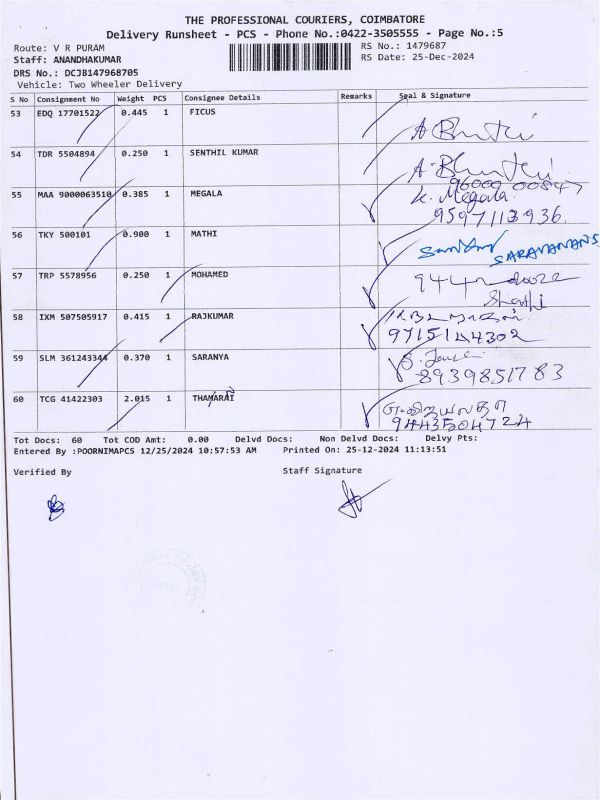 THE PROFESSIONAL COURIERS, COIMBATORE
Delivery Runsheet - PCS - Phone No.:0422-3505555 - Page No.:5
Route: V R PURAM RS No.: 1479687
Staff: ANANDHAKUMAR RS Date: 25-Dec-2024
DRS No.: DCJB147968705
Vehicle: Two Wheeler Delivery
S No Consignment No Weight PCS Consignee Details Remarks Seal & Signature
53 EDQ 17701522 0.445 1 FICUS
54 TDR 5504894 0.250 1 SENTHIL KUMAR
55 MAA 9000063510 0.385 1 MEGALA K. Megala
9597113936
56 TKY 500101 0.900 1 MATHI SARAVANAN S
57 TRP 5578956 0.250 1 MOHAMED
58 IXM 507505917 0.415 1 RAJKUMAR
9715144302
59 SLM 361243344 0.370 1 SARANYA
8939851783
60 TCG 41422303 2.015 1 THAMARAI
9443504724
Tot Docs: 60 Tot COD Amt: 0.00 Delvd Docs: Non Delvd Docs: Delvy Pts:
Entered By :POORNIMAPCS 12/25/2024 10:57:53 AM Printed On: 25-12-2024 11:13:51
Verified By Staff Signature